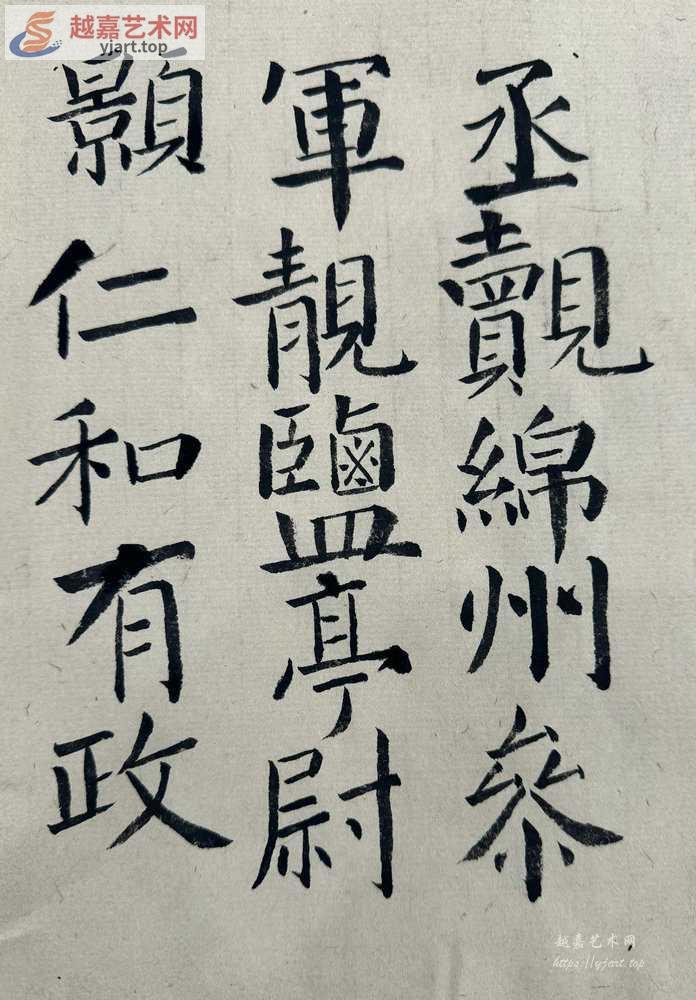 丞覿綿州參
軍靚鹽亭尉
顥仁和有政
越嘉艺术网
yjart.top
越嘉艺术网
https://yjart.top